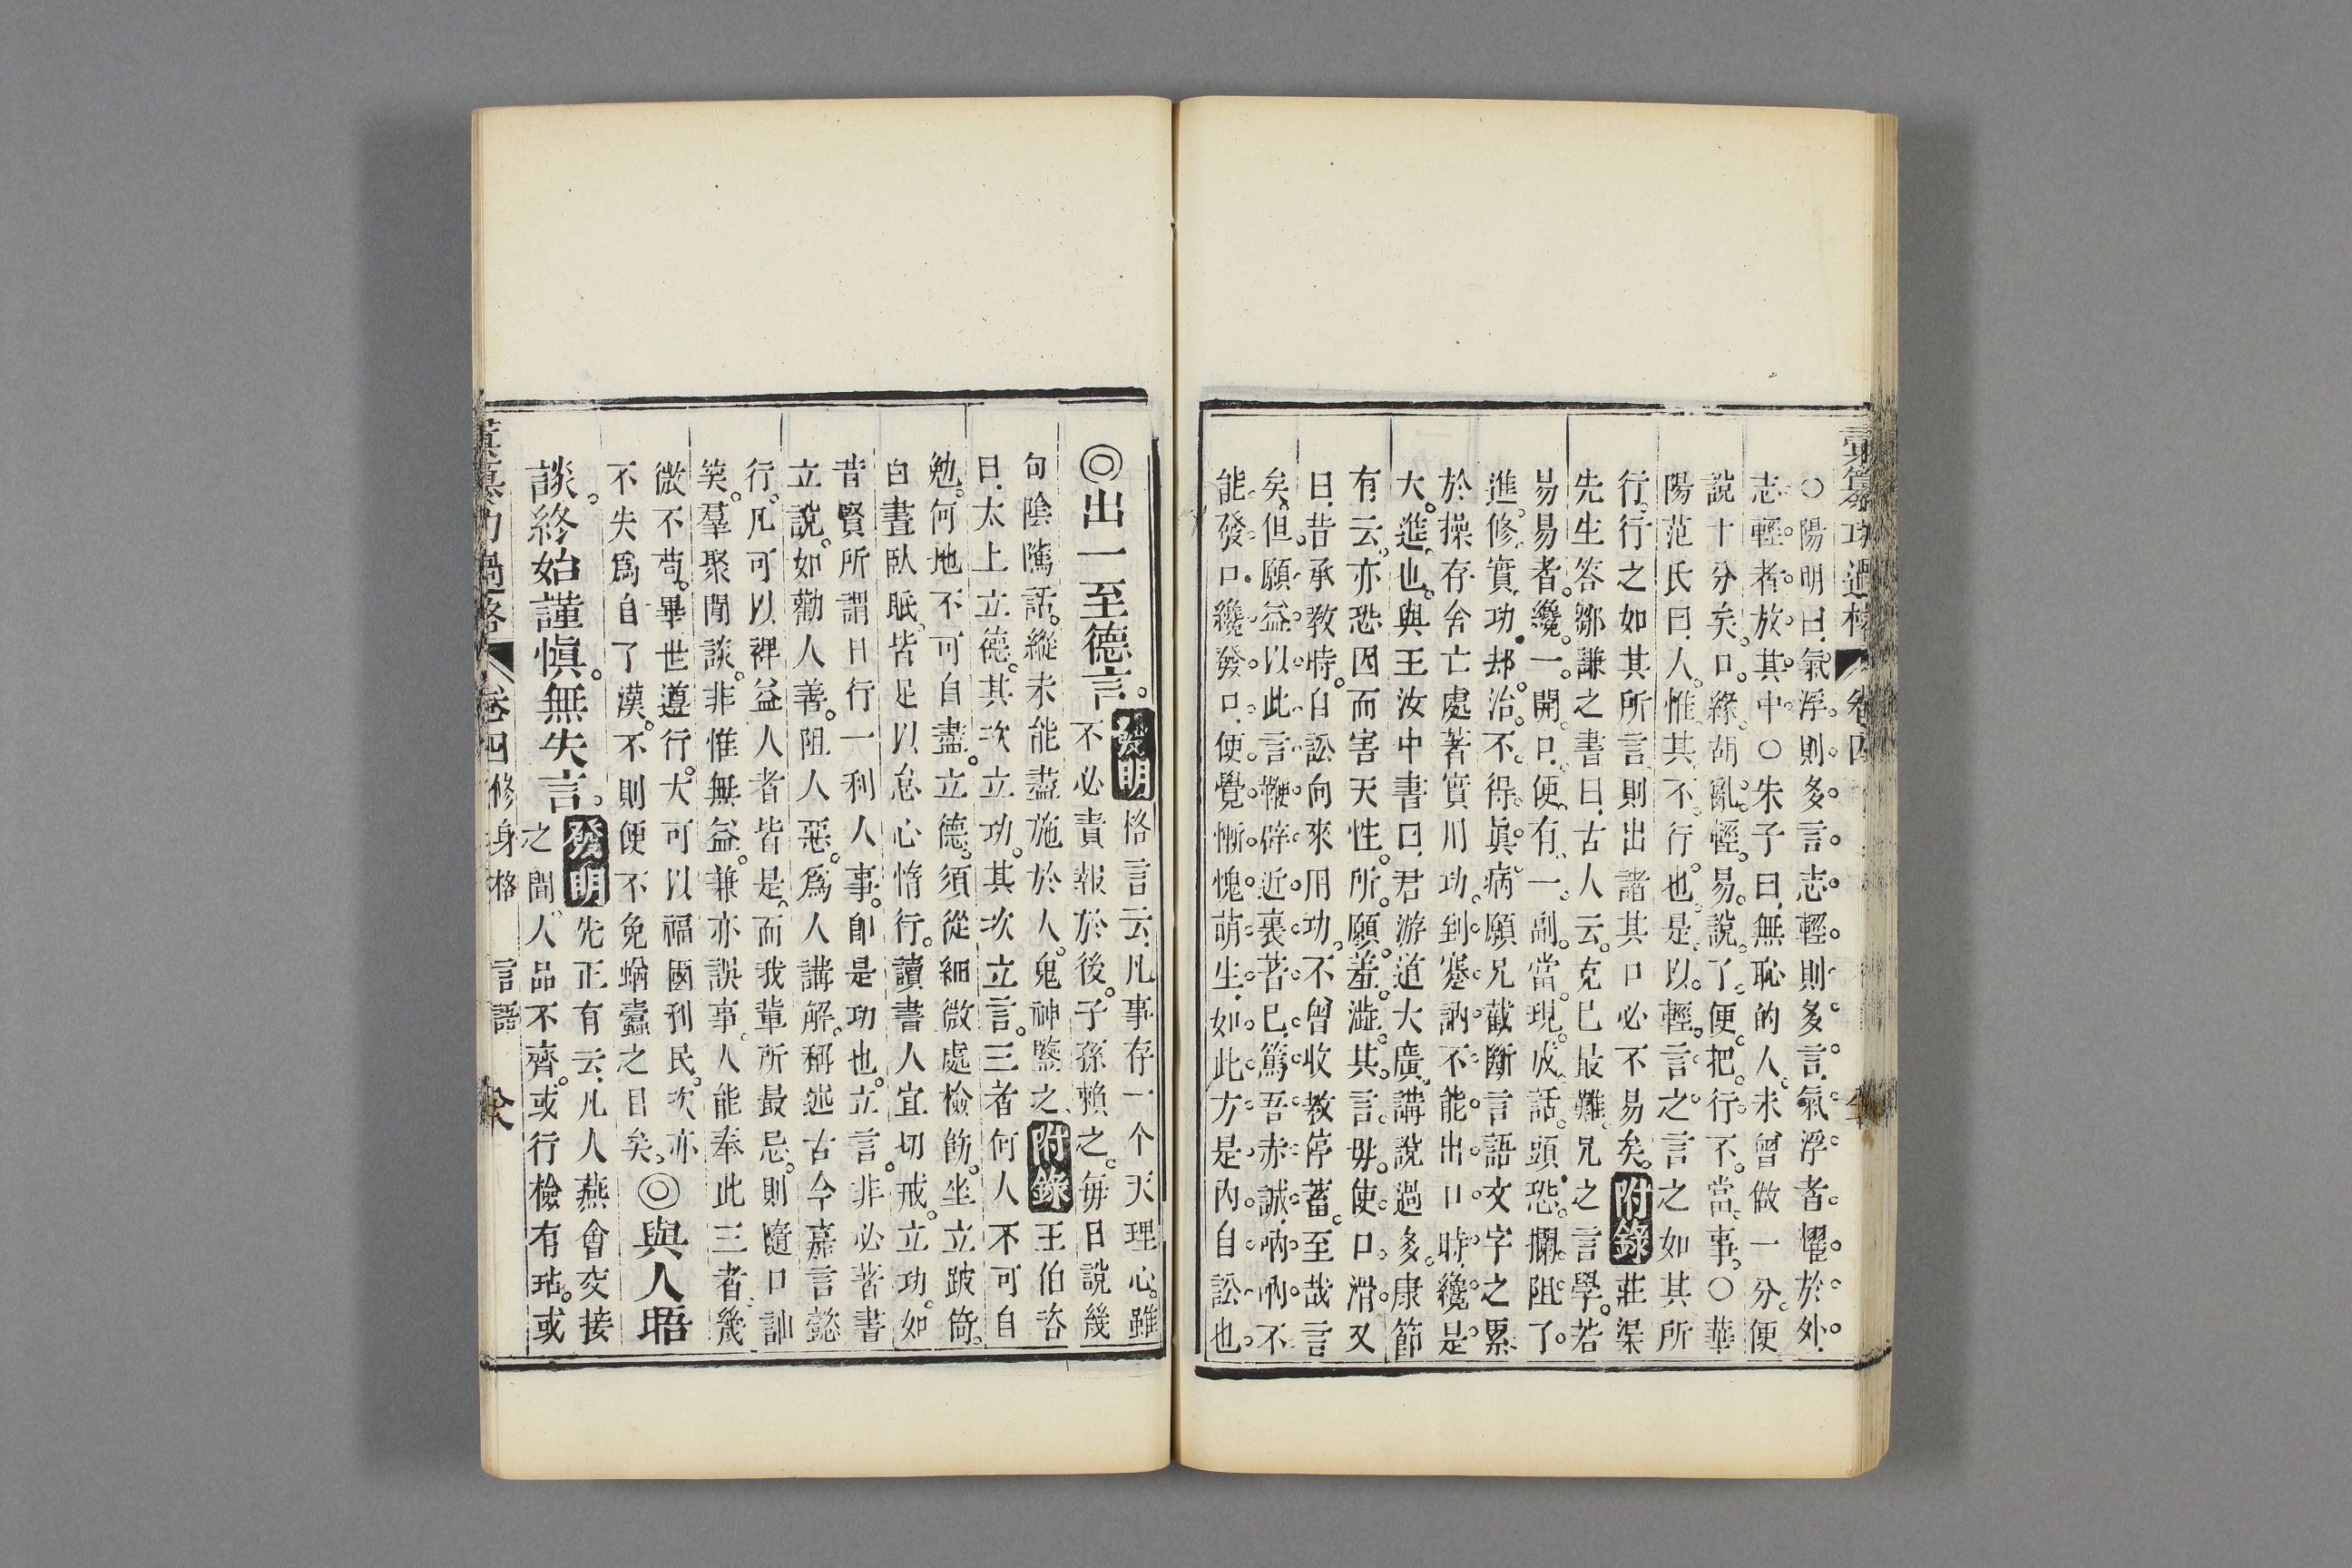 彙纂功過格 卷四
○陽明曰氣浮則多言志輕則多言氣浮者耀於外
志輕者放其中○朱子曰無恥的人未曾做一分便
說十分矣口緣胡亂輕易說了便把行不當事○華
陽范氏曰人惟其不行也是以輕言之言之如其所
行行之如其所言則出諸其口必不易矣附錄莊渠
先生答鄒謙之書曰古人云克巳最難兄之言學若
易易者纔一開口便有一副當現成話頭恐攔阻了
進修實功却治不得眞病願兄截斷言語文字之累
於操存舍亡處著實用功到蹇訥不能出口時纔是
大進也與王汝中書曰君游道大廣講說過多康節
有云亦恐因而害天性所願羞澁其言毋使口滑又
曰昔承教時自訟向來用功不曾收教停蓄至哉言
矣但願益以此言鞭辟近裏苦巳篤吾赤誠吶吶不
能發口纔發口便覺慚愧萌生如此方是內自訟也
◎出一至德言發明格言云凡事存一个天理心雖
不必責報於後子孫賴之每日說幾
句陰隲話縱未能盡施於人鬼神鑒之附錄王伯咨
曰太上立德其次立功其次立言三者何人不可自
勉何地不可自盡立德須從細微處檢飭坐立跛倚
白晝臥眠皆足以怠心惰行讀書人宜切戒立功如
昔賢所謂日行一利人事卽是功也立言非必著書
立說如勸人善阻人惡爲人講解稱述古今嘉言懿
行凡可以裨益人者皆是而我輩所最忌則隨口訕
笑羣聚閒談非惟無益兼亦誤事人能奉此三者幾
微不茍畢世遵行大可以福國利民次亦
不失爲自了漢不則便不免蝤蠹之目矣◎與人晤
談終始謹愼無失言發明先正有云凡人燕會交接
之間人品不齊或行檢有玷或
彙纂功過格 卷四 修身格 言語